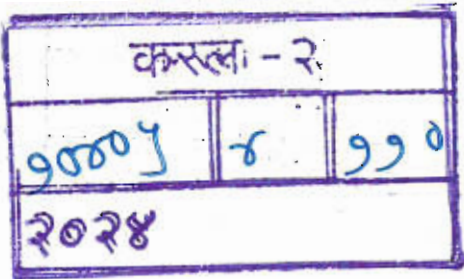 करल - २
१०००५ ४ ११०
२०२४